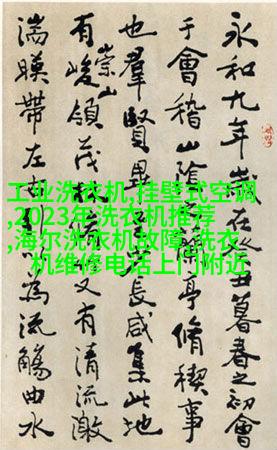 永和九年歲在癸丑暮春之初會
于會稽山陰亭脩稧事
也羣賢畢長咸集此地
有崇山峻領茂又有清流激
湍暎帶左為流觴曲水
工业洗衣机,挂壁式空调
,2023年洗衣机推荐
,海尔洗衣机故障,洗衣
机维修电话上门附近